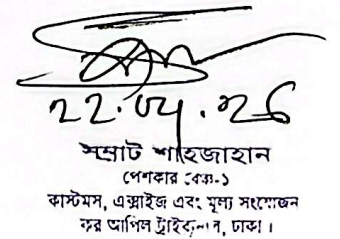 সম্রাট শাহজাহান
পেশকার বেঞ্চ-১
কাস্টমস, এক্সাইজ এবং মূল্য সংযোজন
কর আপিল ট্রাইব্যুনাল, ঢাকা।